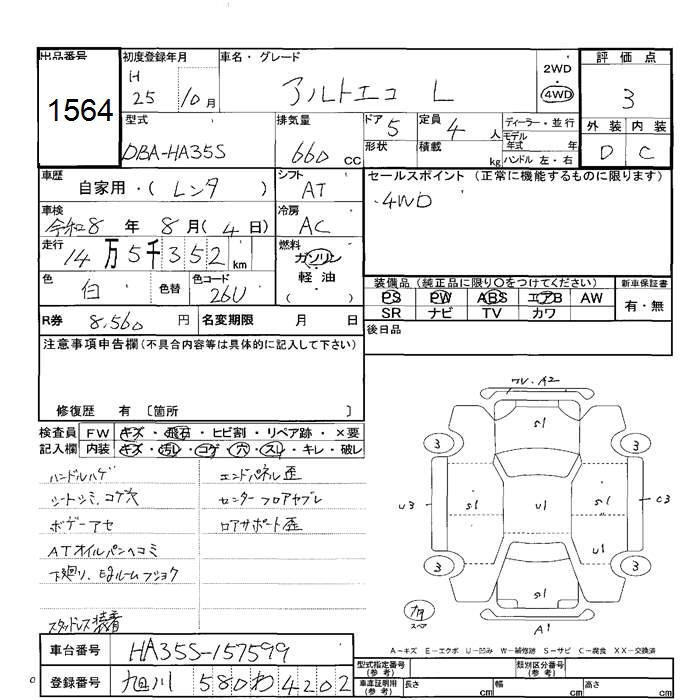 出品番号
1564
初度登録年月
H 25 10月
車名・グレード
アルトエコ L
2WD
4WD
評価点
3
外装 内装
D C
型式
DBA-HA35S
排気量
660 CC
ドア 5
形状
定員 4 人
積載 kg
ディーラー・並行
モデル年式 年
ハンドル 左・右
車歴
自家用・(レンタ)
シフト
AT
セールスポイント (正常に機能するものに限ります)
4WD
車検
令和8年 8月(4日)
冷房
AC
走行
14万5千352km
燃料
ガソリン
・
軽油
( )
色
白
色替
色コード
26U
装備品 (純正品に限り○をつけてください)
PS PW ABS エアB AW
SR ナビ TV カワ
新車保証書
有・無
R券 8,560 円
名変期限 月 日
後日品
注意事項申告欄(不具合内容等は具体的に記入して下さい)
修復歴 有 〔箇所 〕
検査員 FW キズ・飛石・ヒビ割・リペア跡・×要
記入欄 内装 キズ・汚れ・コゲ・穴・スレ・キレ・破レ
ハンドルハゲ
シートシミ、コゲ穴
ボデーアセ
ATオイルパンヘコミ
下廻り、Egルームフショク
スタッドレス装着
エンドパネル歪
センターフロアヤブレ
ロアサポート歪
ワレ・A2
S1
3 3
U3 S1 U1 S1 C3
U1
3 3
S1
A1
スペア
A〜キズ E〜エクボ U〜凹み W〜補修跡 S〜サビ C〜腐食 XX〜交換済
車台番号 HA35S-157599
登録番号 旭川 580 わ 4202
型式指定番号(参考)
類別区分番号(参考)
車庫証明用(参考) 長さ cm 幅 cm 高さ cm